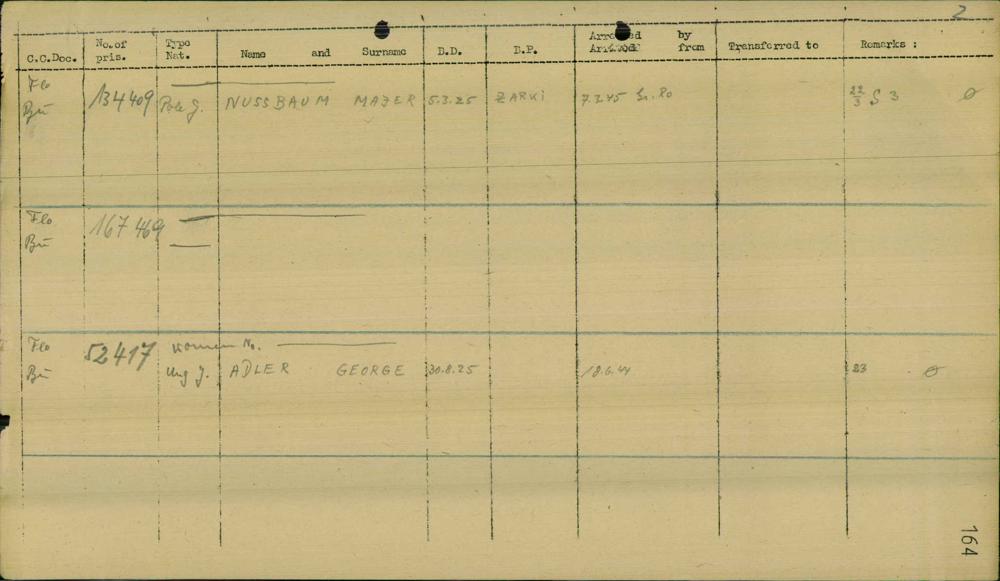 2
C.C.Doc. No. of pris. Type Nat. Name and Surname B.D. B.P. Arrested by Arrived from Transferred to Remarks :
Flo
Bu 134409 Pole J. NUSSBAUM MAJER 5.3.25 ZARKI 7.2.45 Gr. Ro 22/3 S 3 Ø
Flo 167469
Bu
Flo 52417 women No.
Bu Ung J. ADLER GEORGE 30.8.25 18.6.44 23 Ø
164